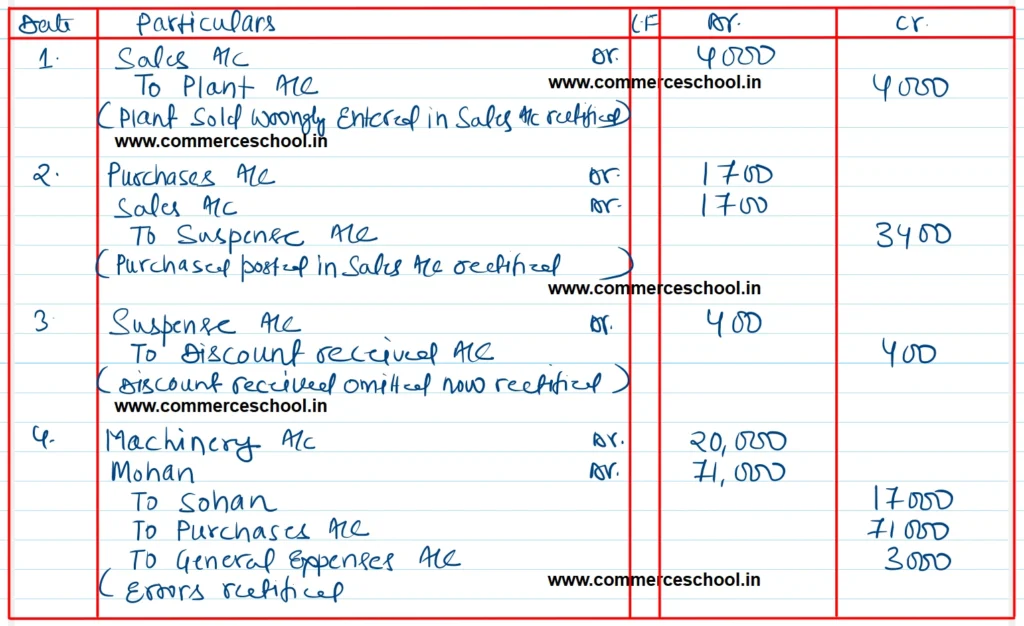 Date Particulars LF Dr. Cr.
1. Sales A/c Dr. 4000
To Plant A/c www.commerceschool.in 4000
(Plant Sold Wrongly Entered in Sales A/c rectified)
www.commerceschool.in
2. Purchases A/c Dr. 1700
Sales A/c Dr. 1700
To Suspense A/c 3400
(Purchased posted in Sales A/c rectified)
www.commerceschool.in
3 Suspense A/c Dr. 400
To Discount received A/c 400
(Discount received omitted now rectified)
www.commerceschool.in
4. Machinery A/c Dr. 20,000
Mohan Dr. 71,000
To Sohan 17000
To Purchases A/c 71000
To General Expenses A/c 3000
(Errors rectified www.commerceschool.in